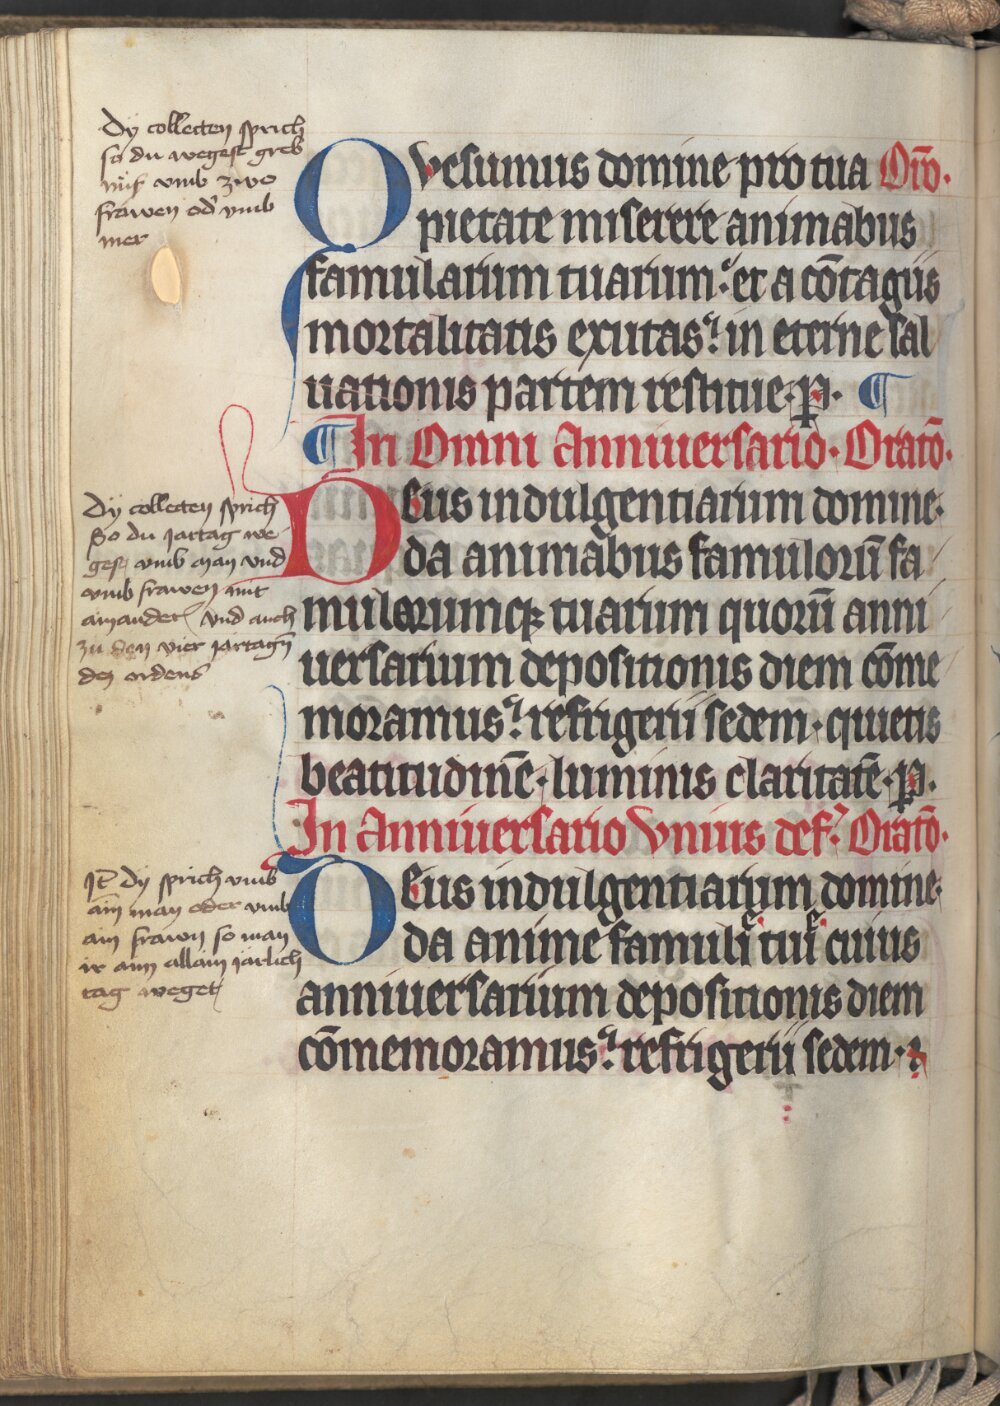 Dÿ collecten sprich
so du wegest greb
nuss vmb zwo
frawen od' vmb
mer
Qvesumus domine pro tua Orō.
pietate miserere animabus
famularum tuarum: et a cōtagiis
mortalitatis exutas: in eterne sal
uationis partem restitue. p. ¶
¶ In Omni Anniuersario. Oratō.
Dÿ collecten sprich
So du jartag we
gest vmb man vnd
vmb frawen mit
ainander vnd auch
zu den vier jartagn
des ordens
Deus indulgentiarum domine.
da animabus famulorū fa
mularumqꝫ tuarum quorū anni
uersarium depositionis diem cōme
moramus: refrigerii sedem. quietis
beatitudinē. luminis claritatē. p.
In Anniuersario Vnius def. Oratō.
Jt dÿ sprich vmb
ain man oder vmb
ain frawn so man
ir ainn allain järlich
tag weget
Deus indulgentiarum domine.
da anime famuli e tui e cuius
anniuersarium depositionis diem
cōmemoramus: refrigerii sedem. ⁊